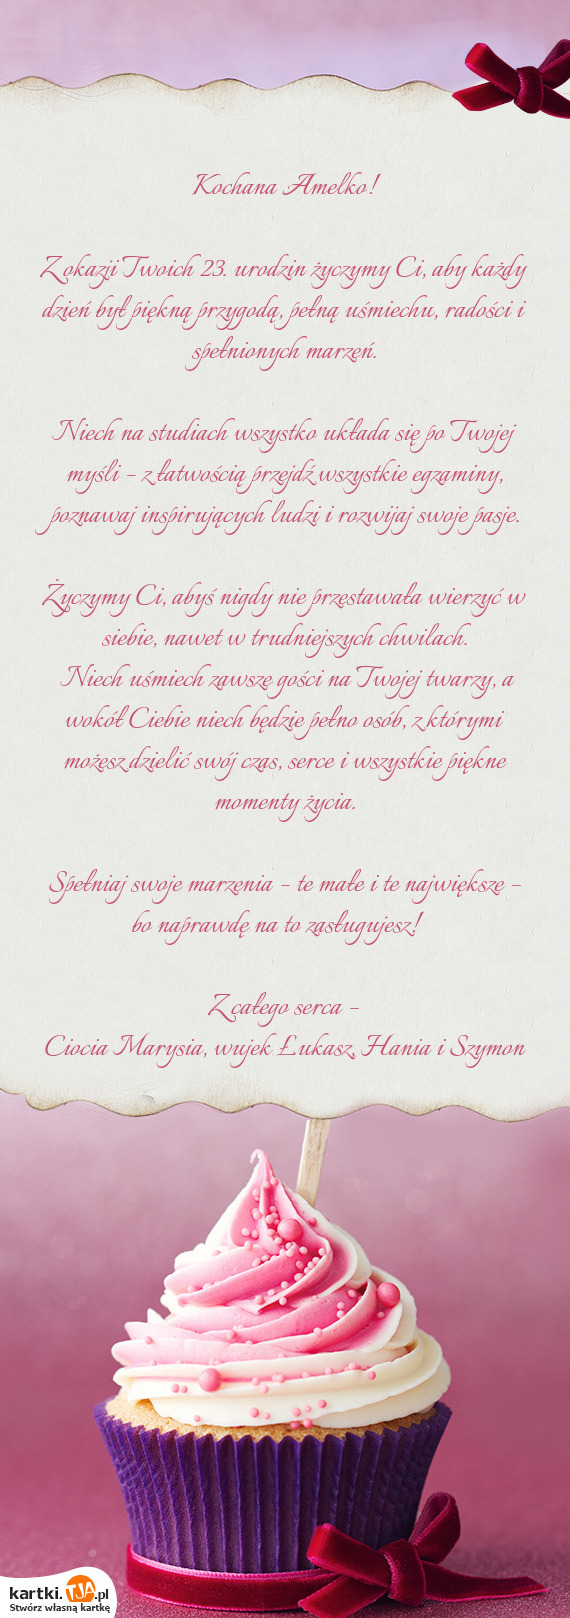 Kochana Amelko!
Z okazji Twoich 23. urodzin życzymy Ci, aby każdy
dzień był piękną przygodą, pełną uśmiechu, radości i
spełnionych marzeń.
Niech na studiach wszystko układa się po Twojej
myśli – z łatwością przejdź wszystkie egzaminy,
poznawaj inspirujących ludzi i rozwijaj swoje pasje.
Życzymy Ci, abyś nigdy nie przestawała wierzyć w
siebie, nawet w trudniejszych chwilach.
Niech uśmiech zawsze gości na Twojej twarzy, a
wokół Ciebie niech będzie pełno osób, z którymi
możesz dzielić swój czas, serce i wszystkie piękne
momenty życia.
Spełniaj swoje marzenia – te małe i te największe –
bo naprawdę na to zasługujesz!
Z całego serca –
Ciocia Marysia, wujek Łukasz, Hania i Szymon
kartki.TJA.pl
Stwórz własną kartkę